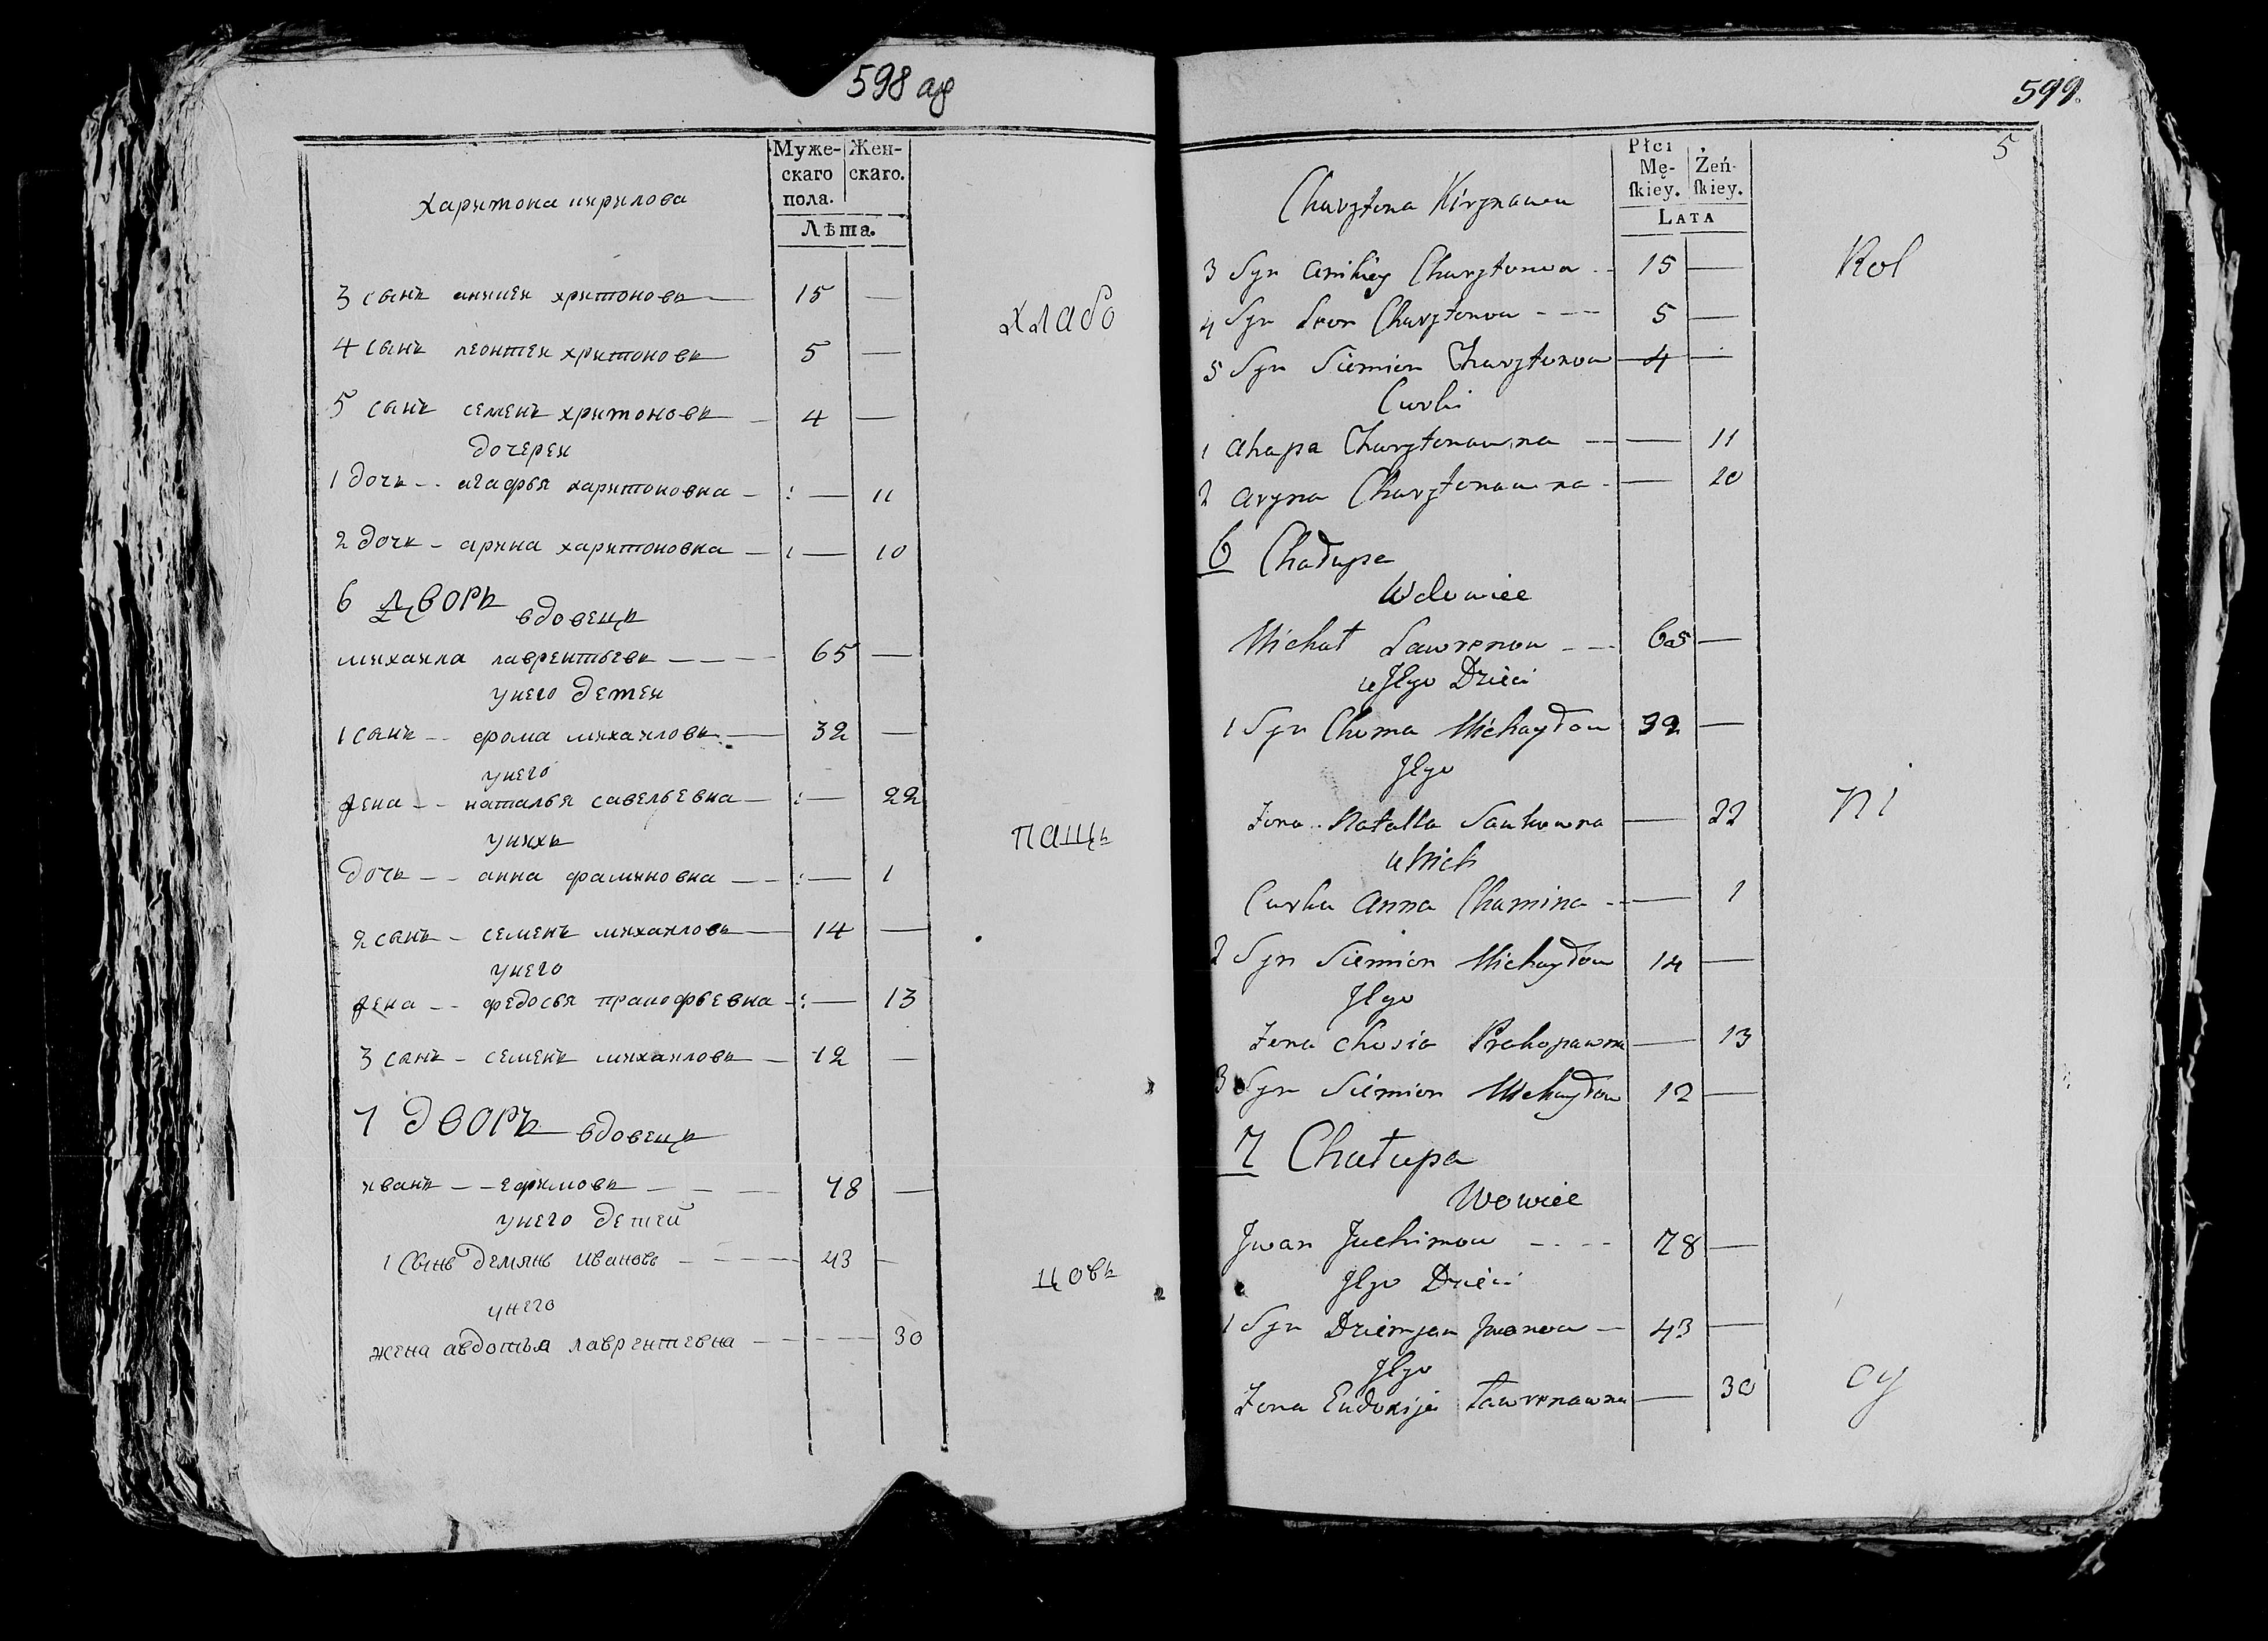 598 об
Муже-
скаго
пола.
Жен-
скаго.
Лѣта.
Харитона кирилова
3 сынъ аникей хритоновъ — 15 —
4 сынъ леонтей хритоновъ 5 —
5 сынъ семенъ хритоновъ — 4 —
дочерей
1 дочь -- агафья харитоновна — : — 11
2 дочь - арина харитоновна — : — 10
6 Дворъ вдовецъ
михаила лаврентьевъ — — — 65 —
унего детей
1 сынъ -- фома михаиловъ — 32 —
унего
жена -- наталья савельевна — : — 22
унихъ
дочь -- анна фаминовна — — : — 1
2 сынъ - семенъ михаиловъ — 14 —
унего
жена -- федосья пракофьевна - : — 13
3 сынъ - семенъ михаиловъ — 12 —
7 Дворъ вдовецъ
иванъ — — ефимовъ — — — 78 —
унего детей
1 сынъ демянъ ивановъ — — — 43 —
унего
жена авдотья лаврентевна — — — 30
хлабо
пащъ
цовъ
599.
5
Płci
Mę-
ſkiey.
Żeń-
ſkiey.
LATA
Charytona Kirynawa
3 Syn Anikiey Charytonow - 15 —
4 Syn Leon Charytonow --- 5 —
5 Syn Siemion Charytonow — 4 —
Curki
1 Ahapa Charytonawna -- — 11
2 Aryna Charytonawna - — 20
6 Chałupa
Wdowiec
Michał Lawrenow --- 65 —
u Jego Dzieci
1 Syn Choma Michayłow 32 —
Jego
Zona .. Natalla Sawkowna — 22
u Nich
Curka Anna Chamina -- — 1
2 Syn Siemion Michayłow 14 —
Jego
Zona Chosia Prakopawna — 13
3 Syn Siemion Michayłow 12 —
7 Chałupa
Wowiec
Jwan Juchimow ---- 78 —
Jego Dzieci
1 Syn Dziemjan Jwanow — 43 —
Jego
Zona Eudokija Ławrenawna — 30
Rol
ni
cy